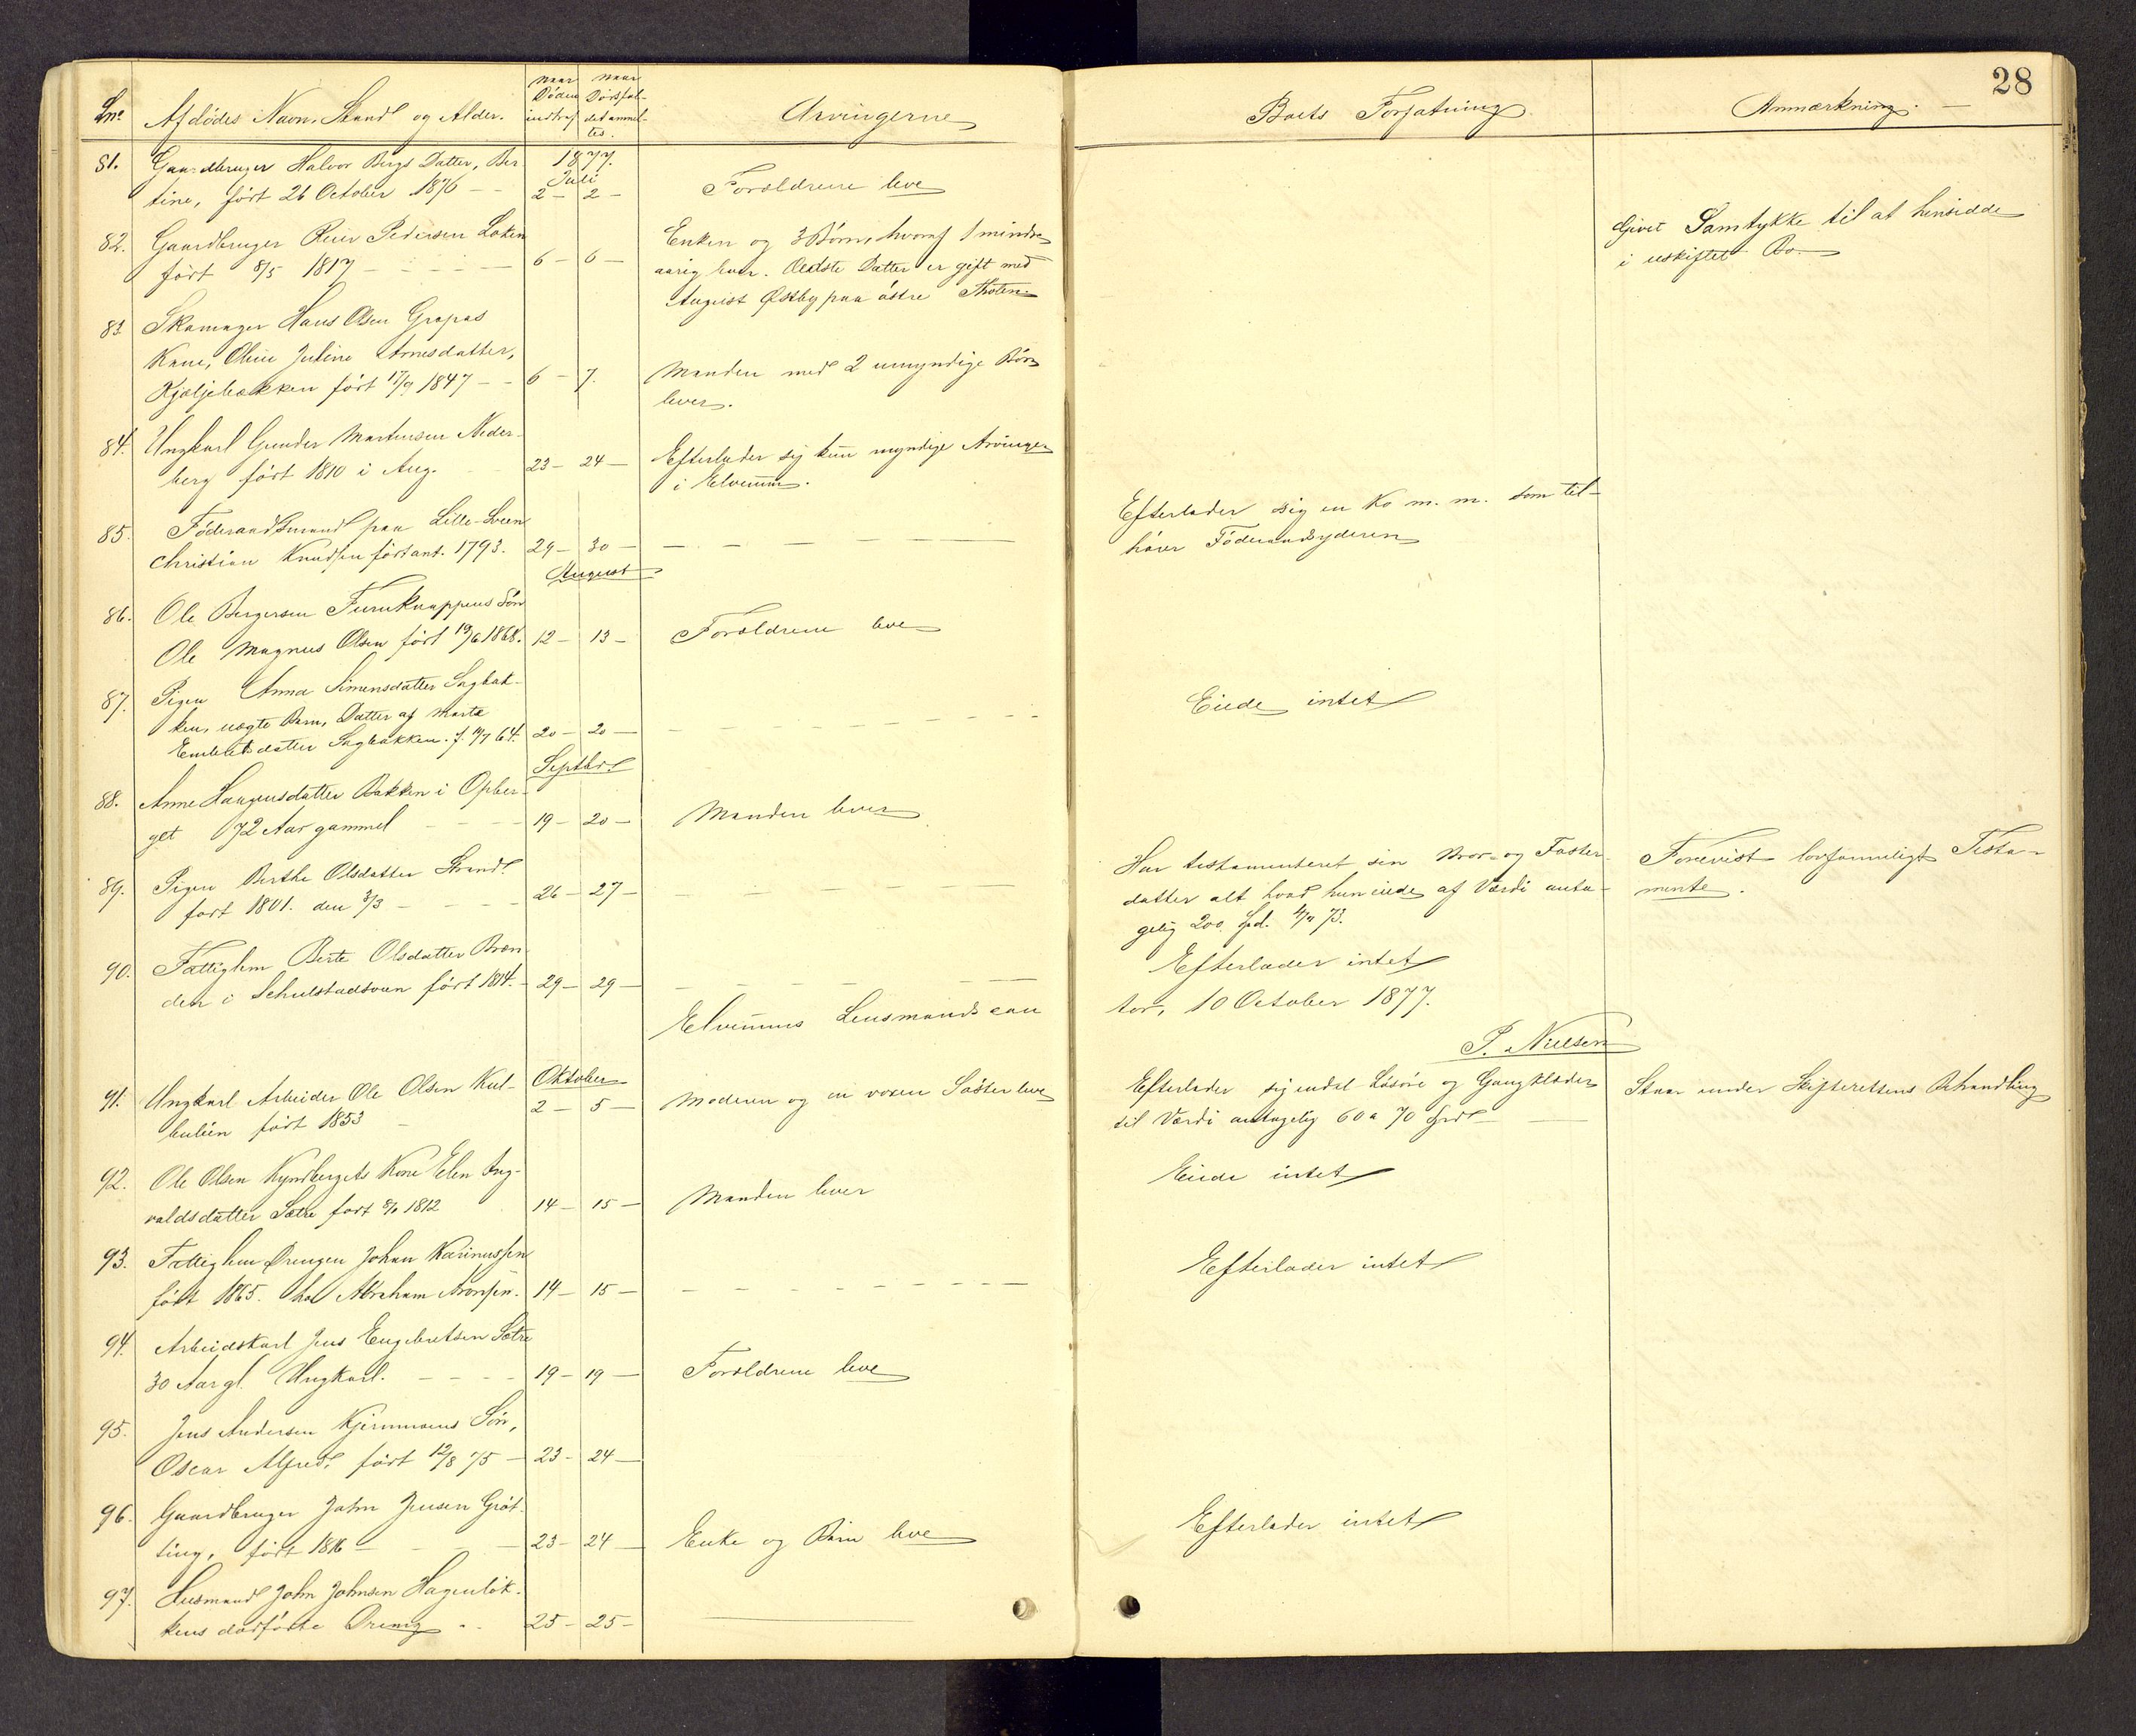 28
Lnr. Afdødes Navn, Stand og Alder. Naar Døden indtraf Naar Dødsfaldet anmeldtes. Arvingerne Boets Forfatning Anmærkning.
81. Gaardbruger Halvor Bergs Datter, Ber- 1877.
tine, født 26 October 1876 - - Juli 2 - 2 - Forældrene leve
82. Gaardbruger Peder Pedersen Løken Enken og 3 Børn, hvoraf 1 mindre- Givet Samtykke til at hensidde
født 8/5 1817 - 6 - 6 - aarig lever. Ældste Datter er gift med i uskiftet Bo.
August Østby paa østre Thoten.
83. Skomager Hans Olsen Grapas
Kone, Oline Juline Arnesdatter,
Kjøljebakken født 17/9 1847 - - 6 - 7. Manden med 2 umyndige Børn
lever.
84. Ungkarl Gunder Martinsen Neder-
berg født 1810 i Aug. 23 - 24 - Efterlader sig kun myndige Arvinger
i Elverum.
85. Føderaadsmand paa Lille-Sveen Efterlader sig en Ko m. m. som til-
Christian Knudsen født ant. 1793. 29 - 30 - hører Føderaadsyderen
August
86. Ole Bergersen Furuknappens Søn
Ole Magnus Olsen født 19/6 1868. 12 - 13 - Forældrene leve
87. Pigen Anna Simensdatter Sagbak-
ken, uægte Barn, Datter af Marte Eiede intet
Embretsdatter Sagbakken. f. 64. 20 - 20 -
Septbr
88. Anne Haagensdatter Bakken i Opber-
get 72 Aar gammel 19 - 20 - Manden lever
89. Pigen Berthe Olsdatter Strand Har testamenteret sin Bror- og Foster- Forevist lovformeligt Testa-
født 1801. den 3/3 - 26 - 27 - datter alt hvad hun eiede af Værdi anta- mente.
gelig 200 Spd. 73.
90. Fattiglem Berte Olsdatter Bræn- Efterlader intet
den i Schulstadsveen født 1814. - 29 - 29 -
Elverums Lensmandscon tor, 10 October 1877.
P. Nielsen
91. Ungkarl Arbeider Ole Olsen Kul- Oktober Efterlader sig endel Løsøre og Gangklæder Staar under Skifterettens Behandling
bulien født 1853 2 - 5 - Moderen og en voxen Søster leve til Værdi antagelig 60 a 70 Spd
92. Ole Olsen Kyndbergets Kone Elen Ing- Eiede intet
valdsdatter Sætre født 1812 14 - 15 - Manden lever
93. Fattiglem Drengen Johan Karinussen Efterlader intet
født 1865. hos Abraham Aronsen. 14 - 15 -
94. Arbeidskarl Jens Engebretsen Sætre
30 Aar gl. Ungkarl. - 19 - 19 - Forældrene leve
95. Jens Andersen Kjernmoens Søn,
Oscar Alfred, født 12/8 75 - 23 - 24 -
96. Gaardbruger John Jensen Grøt- Efterlader intet
ting, født 1816 - 23 - 24 - Enke og Børn leve
97. Husmand John Johnsen Hagenløk-
kens dødfødte Dreng 25 - 25 -